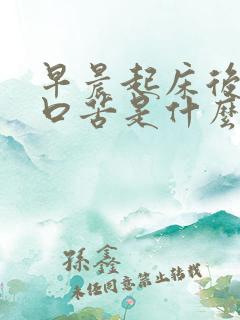 早晨起床後
口苦是什麼
孫鑫
未經同意禁止轉載